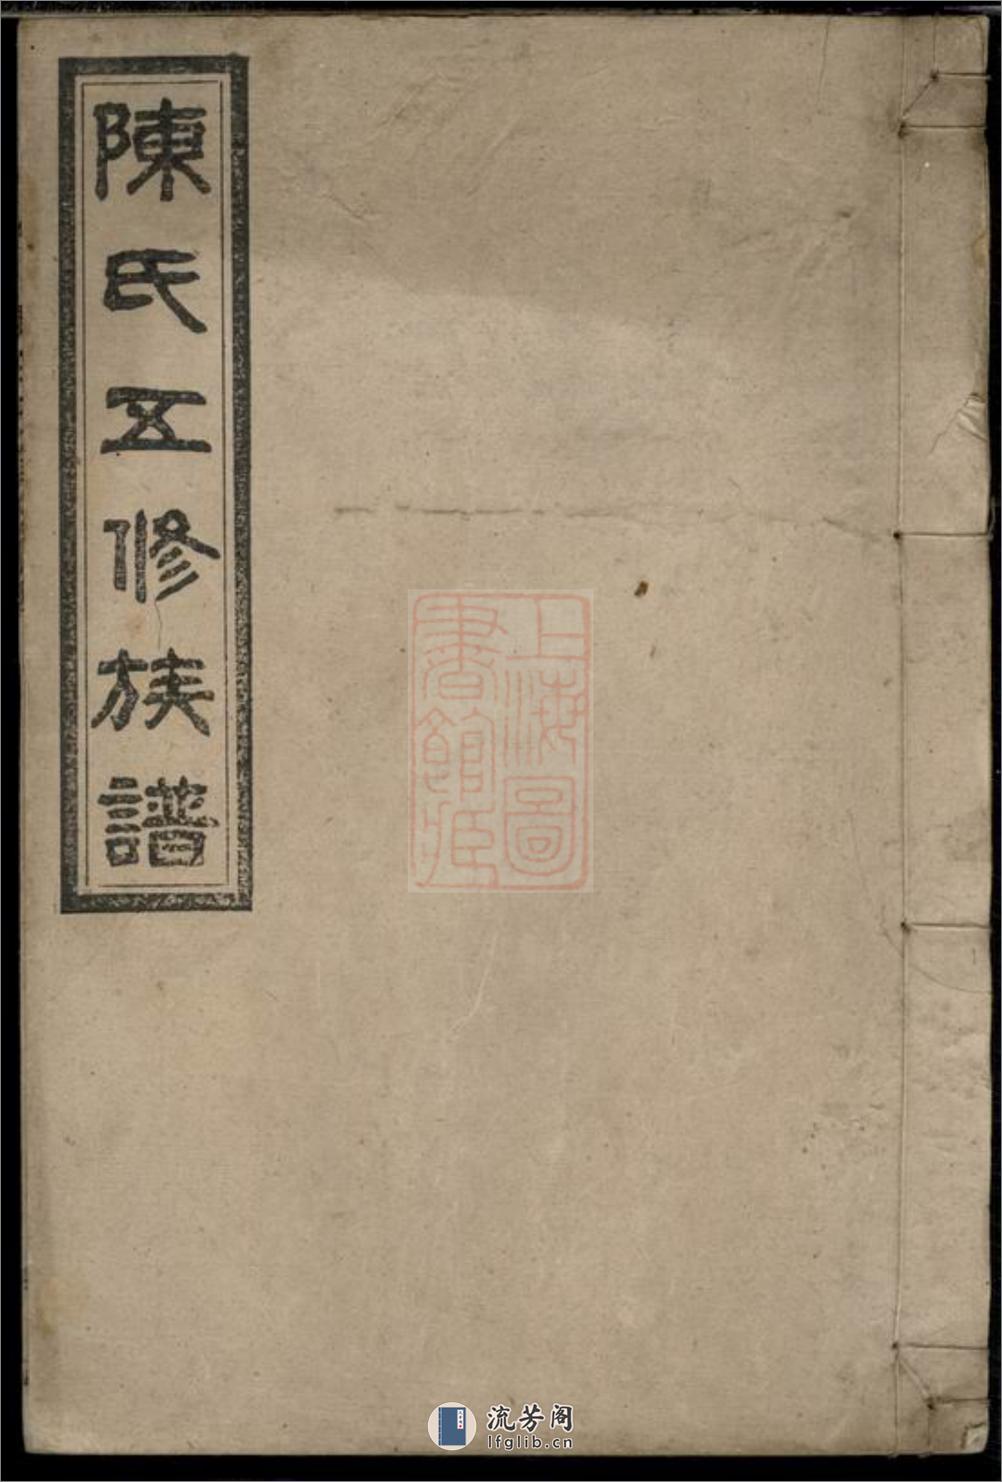 陳氏五修族譜
上海圖
書館藏
流芳阁
lfglib.cn